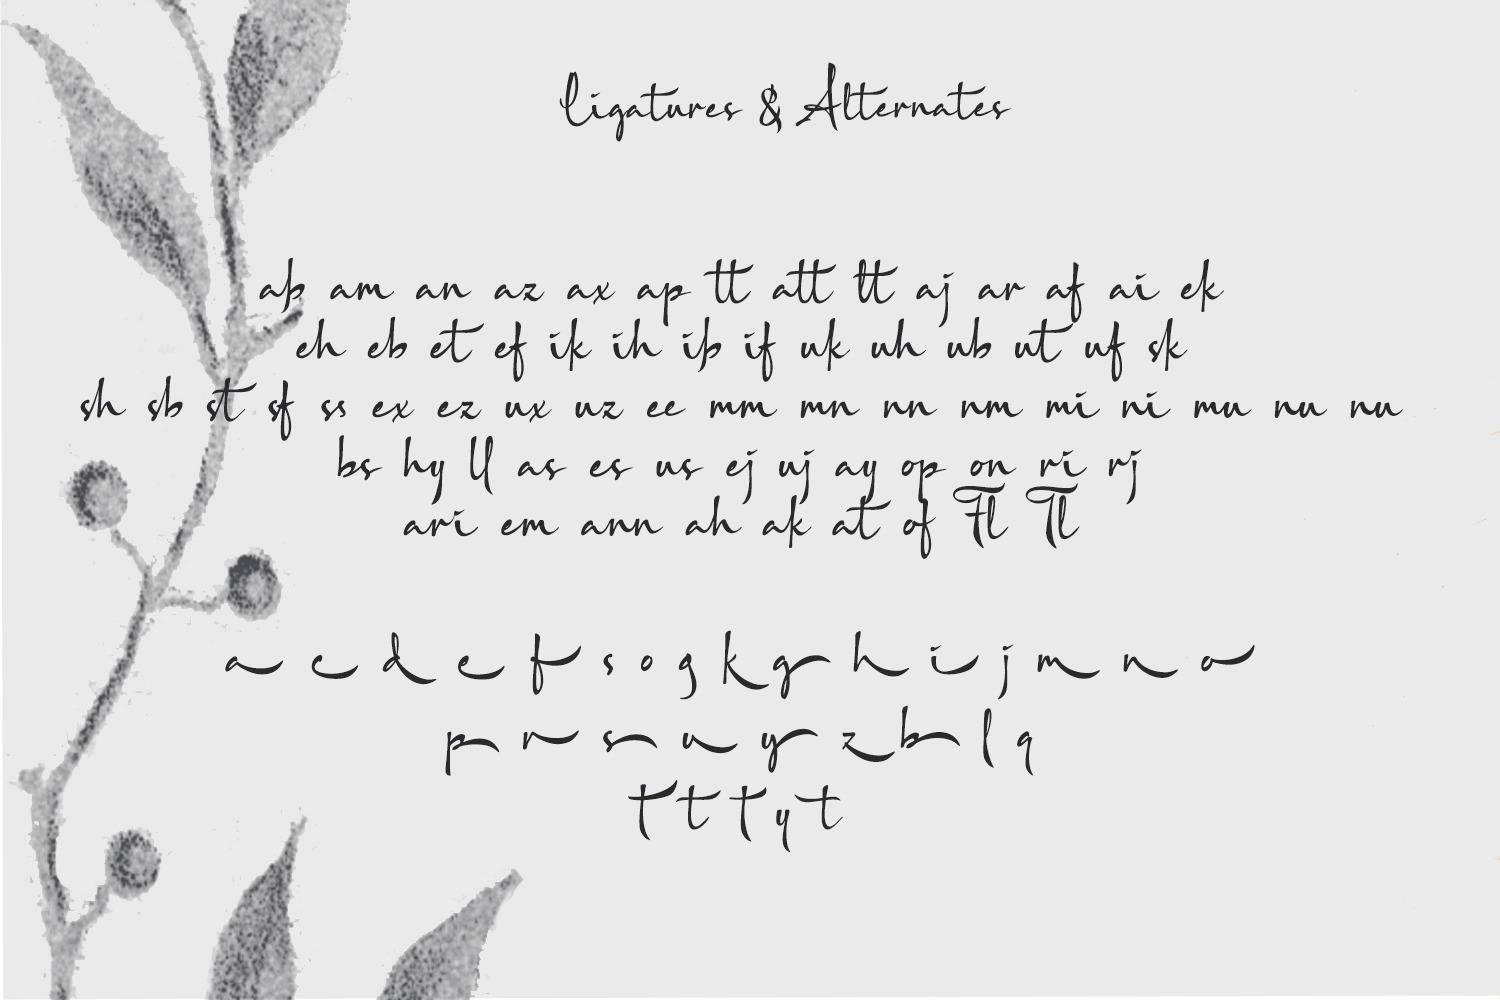 Ligatures & Alternates
ab am an az ax ap tt att tt aj ar af ai ek
eh eb et ef ik ih ib if uk uh ub ut uf sk
sh sb st sf ss ex ez ux uz ee mm mn nn nm mi ni mu nu nu
bs hy ll as es us ej uj ay op on ri rj
ari em ann ah ak at of Fl Tl
a c d e f s o g k g h i j m n o
p r s u y z b l q
t t t y t